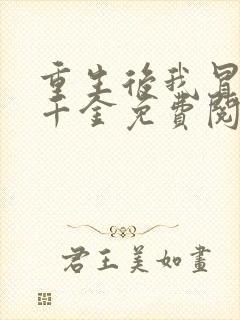 重生後我是
千金免費閱
君王美如畫